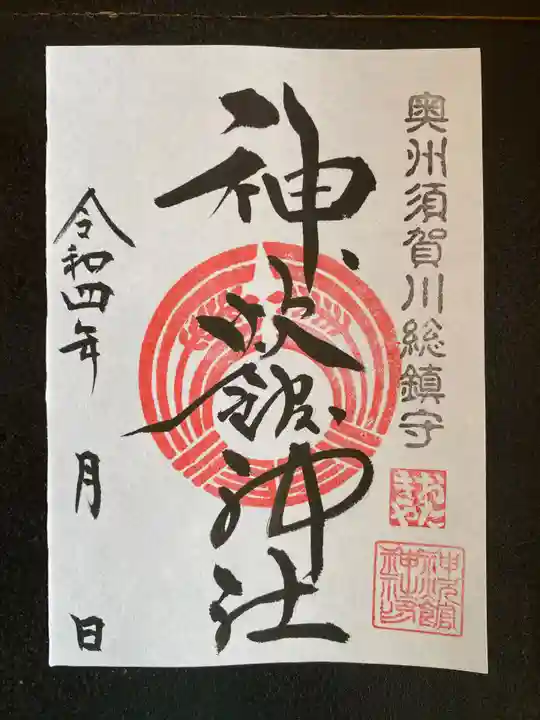 奥州須賀川総鎮守
神炊館神社
令和四年 月 日
神炊館神社